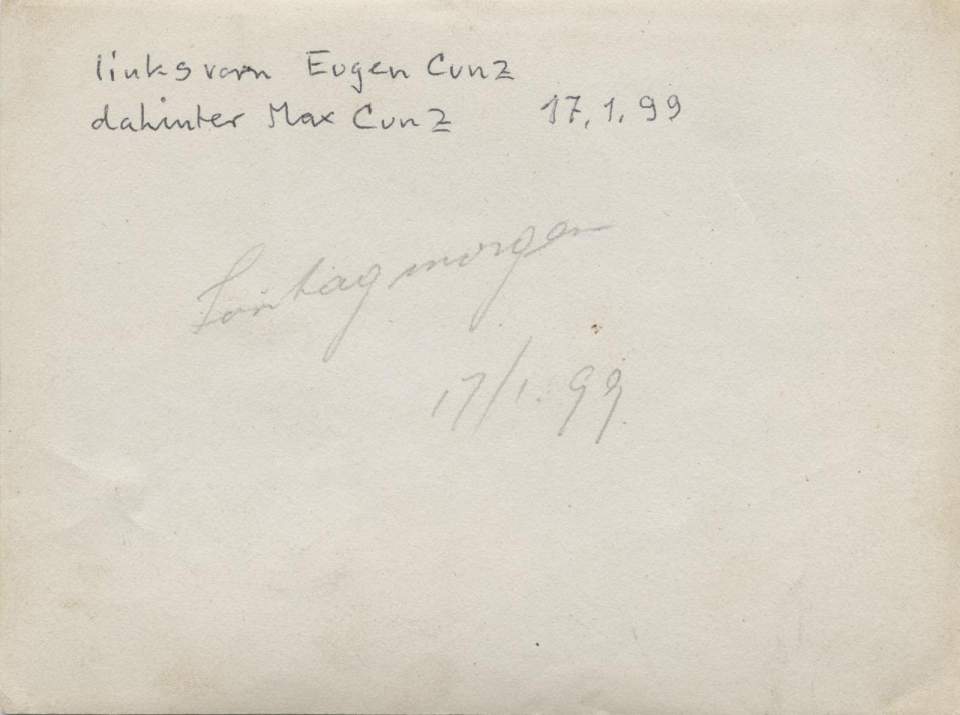 links vorn Eugen Cunz
dahinter Max Cunz 17.1.99
Sontag morgen
17/1.99.